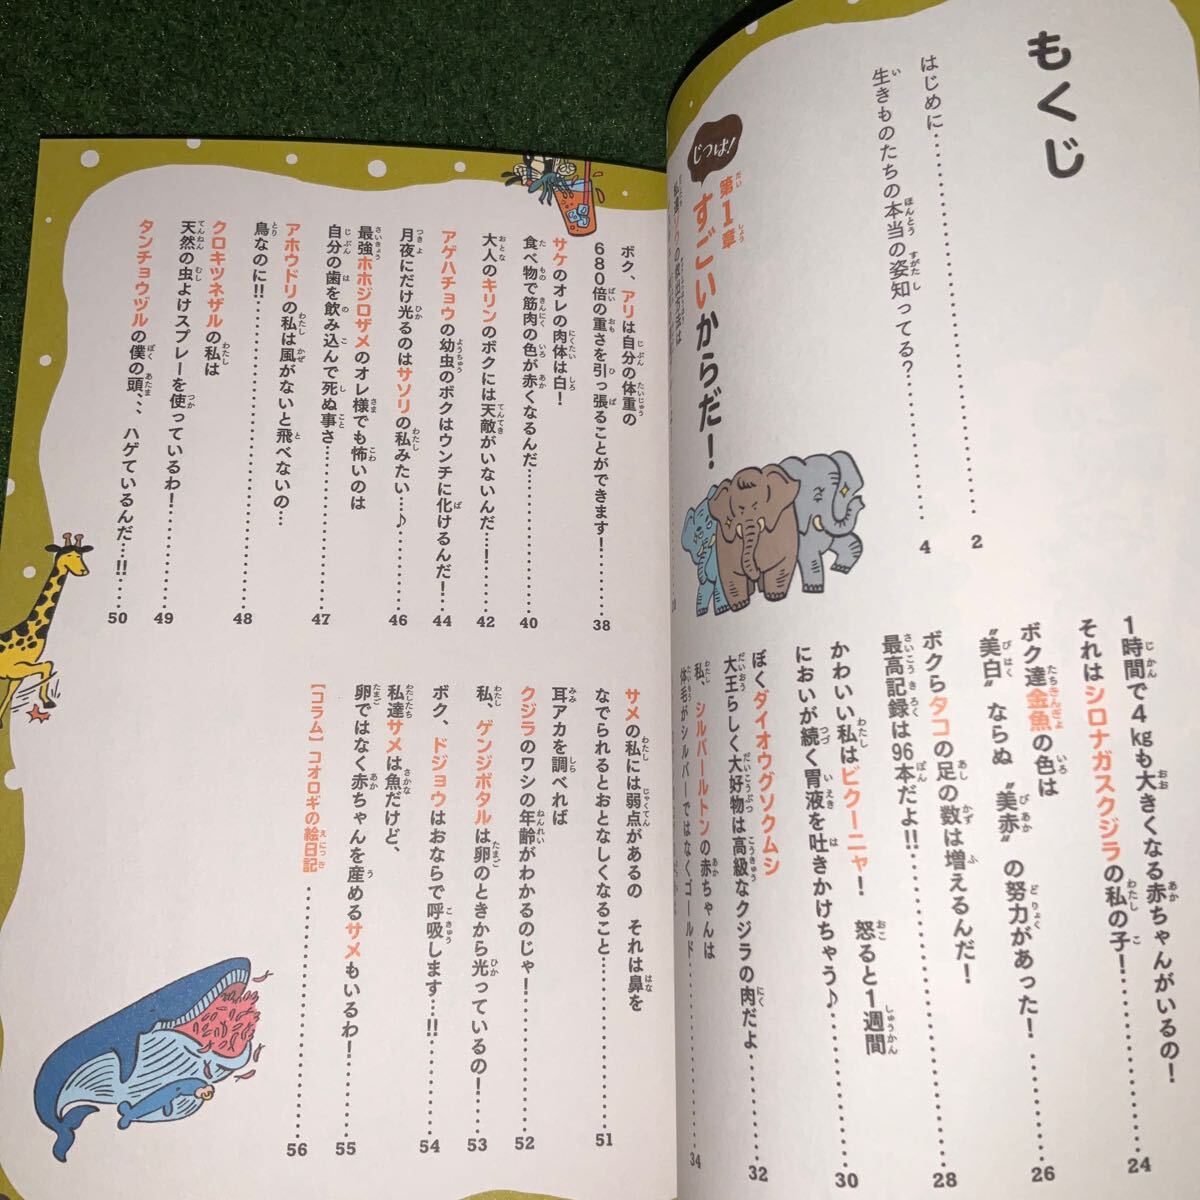 もくじ
はじめに……………………2
生きものたちの本当の姿知ってる？……………4
じつは！
第1章
すごいからだ！
1時間で4kgも大きくなる赤ちゃんがいるの！
それはシロナガスクジラの私の子！……24
ボク達金魚の色は
〝美白〟ならぬ〝美赤〟の努力があった！……26
ボクらタコの足の数は増えるんだ！
最高記録は96本だよ!!……………28
かわいい私はビクーニャ！　怒ると1週間
においが続く胃液を吐きかけちゃう♪……30
ぼくダイオウグソクムシ
大王らしく大好物は高級なクジラの肉だよ……32
私、シルバールトンの赤ちゃんは
体毛がシルバーではなくゴールド……34
ボク、アリは自分の体重の
680倍の重さを引っ張ることができます！……38
サケのオレの肉体は白！
食べ物で筋肉の色が赤くなるんだ……40
大人のキリンのボクには天敵がいないんだ…！……42
アゲハチョウの幼虫のボクはウンチに化けるんだ！……44
月夜にだけ光るのはサソリの私みたい…♪……46
最強ホホジロザメのオレ様でも怖いのは
自分の歯を飲み込んで死ぬ事さ……47
アホウドリの私は風がないと飛べないの…
鳥なのに!!……48
クロキツネザルの私は
天然の虫よけスプレーを使っているわ！……49
タンチョウヅルの僕の頭、、、ハゲているんだ…!!……50
サメの私には弱点があるの　それは鼻を
なでられるとおとなしくなること……51
耳アカを調べれば
クジラのワシの年齢がわかるのじゃ！……52
私、ゲンジボタルは卵のときから光っているの！……53
ボク、ドジョウはおならで呼吸します…!!……54
私達サメは魚だけど、
卵ではなく赤ちゃんを産めるサメもいるわ！……55
【コラム】コオロギの絵日記……56